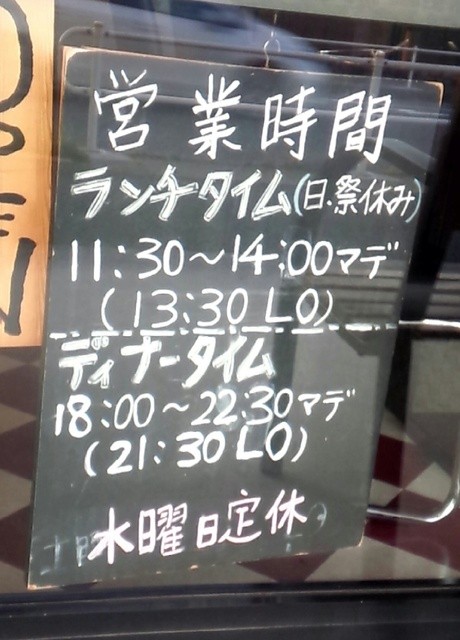 営業時間
ランチタイム(日・祭休み)
11:30〜14:00マデ
(13:30 LO)
ディナータイム
18:00〜22:30マデ
(21:30 LO)
水曜日定休